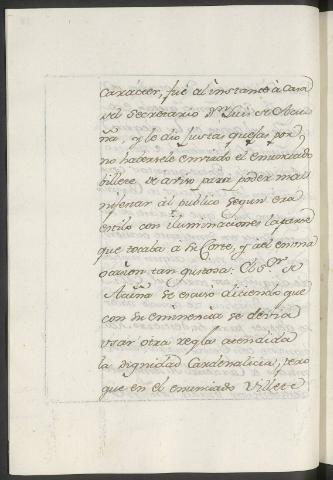 Carácter, fué al instante à Casa
del Secretario Dn. Luis de Acu
ña, y le dió justas quejas por
no habersele enviado el enunciado
villete de aviso para poder ma
nifestar al publico segun era
estilo con iluminaciones la parte
que tocaba à su Corte, y à él en una
ocasion tan gustosa: El Sr. de
Acuña se escusó diciendo que
con su eminencia se debia
usar otra regla atendida
la dignidad Cardenalicia, pero
que en el enunciado Villete